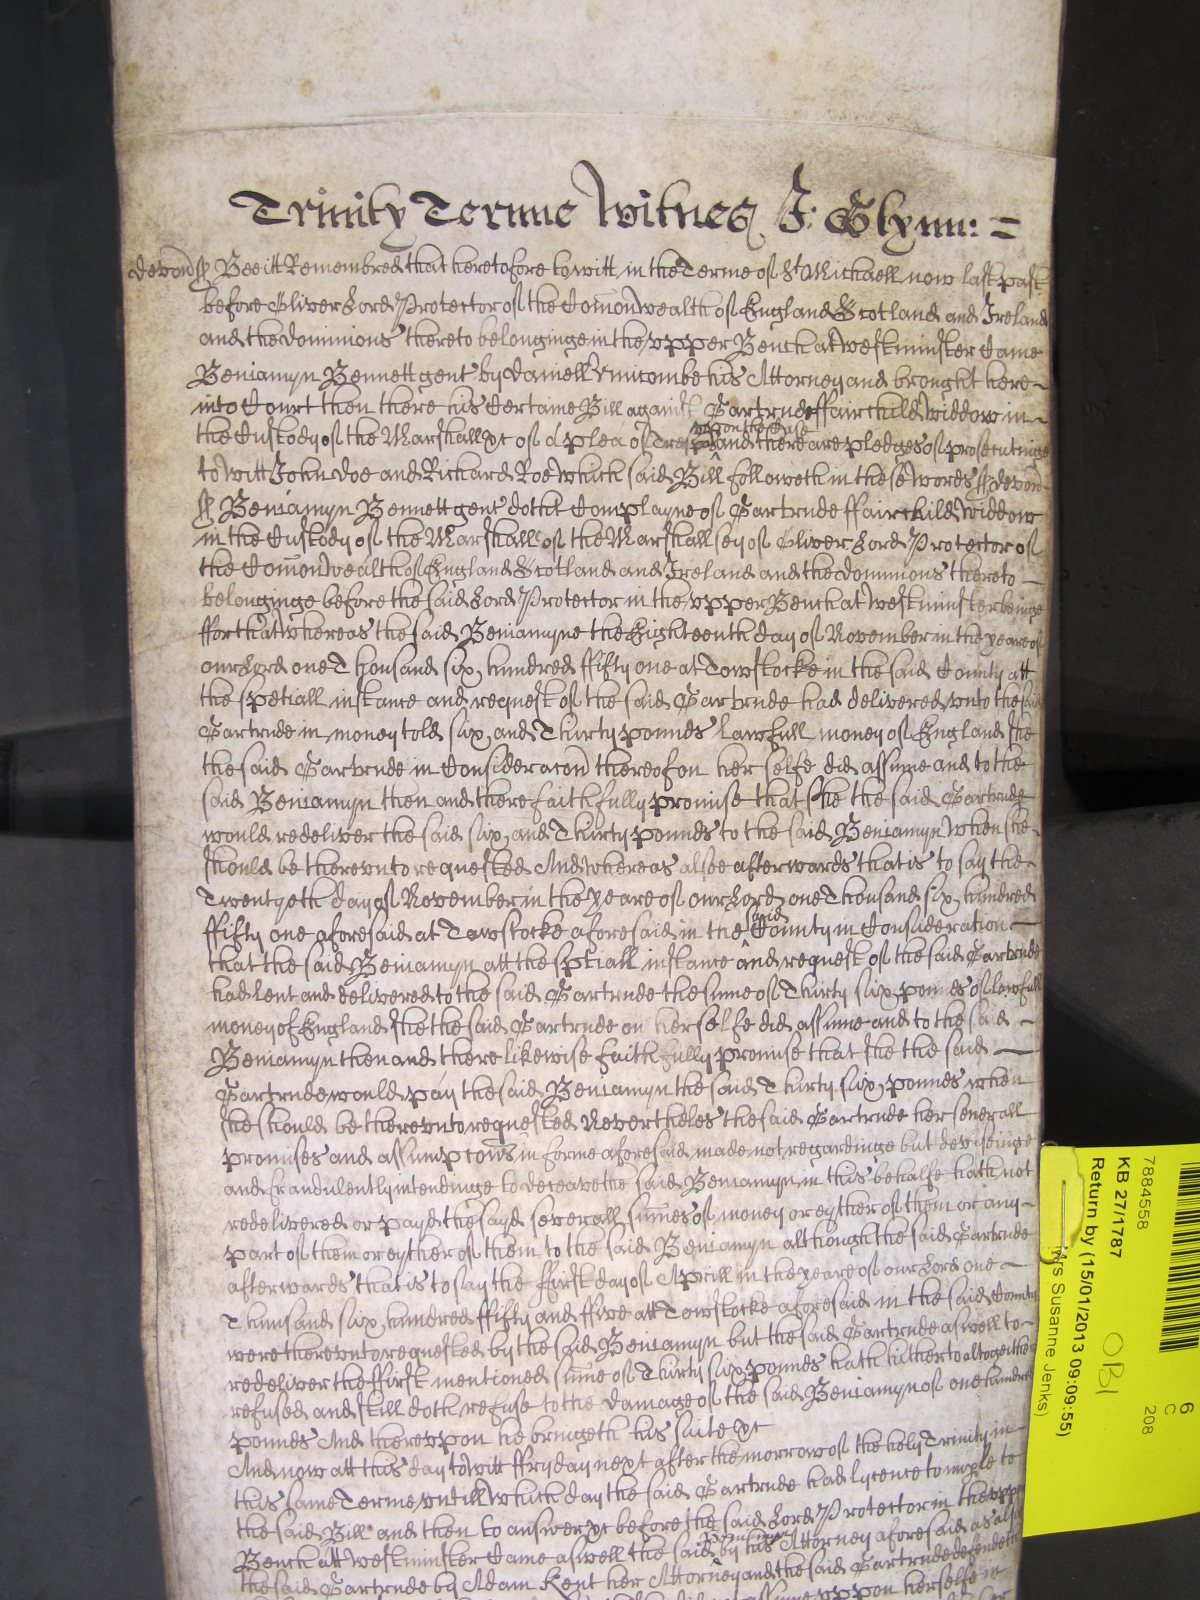 Trinity Terme Witnes J: Glynn: =
Devon ss Bee itt Remembred that heretofore to witt in the Terme of St Michaell now last past
before Oliver Lord Protector of the Comonwealth of England Scotland and Ireland
and the dominions thereto belonginge in the vpper Bench at Westminster Came
Beniamyn Bennett gent by Daniell Vmicombe his Attorney and brought here
into Court then there his Certaine Bill against Gartrude ffairchild widdow in
the Custody of the Marshall &c of a plea of Tresp vpon the Case and there are pledges of prosecutinge
to witt John Doe and Richard Roe which said Bill followeth in these words ss Devon
ss Beniamyn Bennett gent doth Complayne of Gartrude ffairchild widdow
in the Custody of the Marshall of the Marshallsey of Oliver Lord Protector of
the Comonwealth of England Scotland and Ireland and the dominions thereto
belonginge before the said Lord Protector in the vpper Bench at Westminster beinge
ffor that whereas the said Beniamyne the Eighteenth day of November in the yeare of
our Lord one Thousand six hundred ffifty one at Towstocke in the said County att
the spetiall instance and request of the said Gartrude had delivered vnto the said
Gartrude in money told six and Thirty pounds lawfull money of England she
the said Gartrude in Consideracon thereof on her selfe did assume and to the
said Beniamyn then and there faithfully promise that she the said Gartrude
would redeliver the said six and Thirty pounds to the said Beniamyn when she
should be therevnto requested And whereas alsoe afterwards that is to say the
Twentyeth day of November in the yeare of our Lord one Thousand six hundred
ffifty one aforesaid at Tawstocke aforesaid in the said County in Consideration
that the said Beniamyn att the sptiall instance and request of the said Gartrude
had lent and delivered to the said Gartrude the sume of Thirty six pounds of lawfull
money of England she the said Gartrude on her selfe did assume and to the said
Beniamyn then and there likewise faithfully promise that she the said
Gartrude would pay the said Beniamyn the said Thirty six pounds when
she should be therevnto requested Nevertheles the said Gartrude her severall
promises and assumpcons in forme aforesaid made not regardinge but deviseinge
and fraudulently intendinge to deceave the said Beniamyn in this behalfe hath not
redelivered or payd the sayd severall sumes of money or eyther of them or any
part of them or eyther of them to the said Beniamyn although the said Gartrude
afterwards that is to say the ffirst day of Aprill in the yeare of our Lord one
Thousand six hundred ffifty and ffive att Towstocke aforesaid in the said County
were therevnto requested by the said Beniamyn but the said Gartrude aswell to
redeliver the ffirst mentioned sume of Thirty six pounds hath hitherto altogether
refused and still doth refuse to the damage of the said Beniamyn of one hundred
pounds And therevpon he bringeth his suite &c
And now att this day to witt ffryday next after the morrow of the holy Trinity in
this same Terme vntill which day the said Gartrude had lycence to imple to
the said Bill and then to answer &c before the said Lord Protector in the vpper
Bench att Westminster Came aswell the said Beniamyn by his Attorney aforesaid as also
the said Gartrude by Adam Kent her Attorney and the said Gartrude defendeth
assume vppon herselfe in
7884558
KB 27/1787
Return by (15/01/2013 09:09:55)
Mrs Susanne Jenks)
OBI
6
C
208